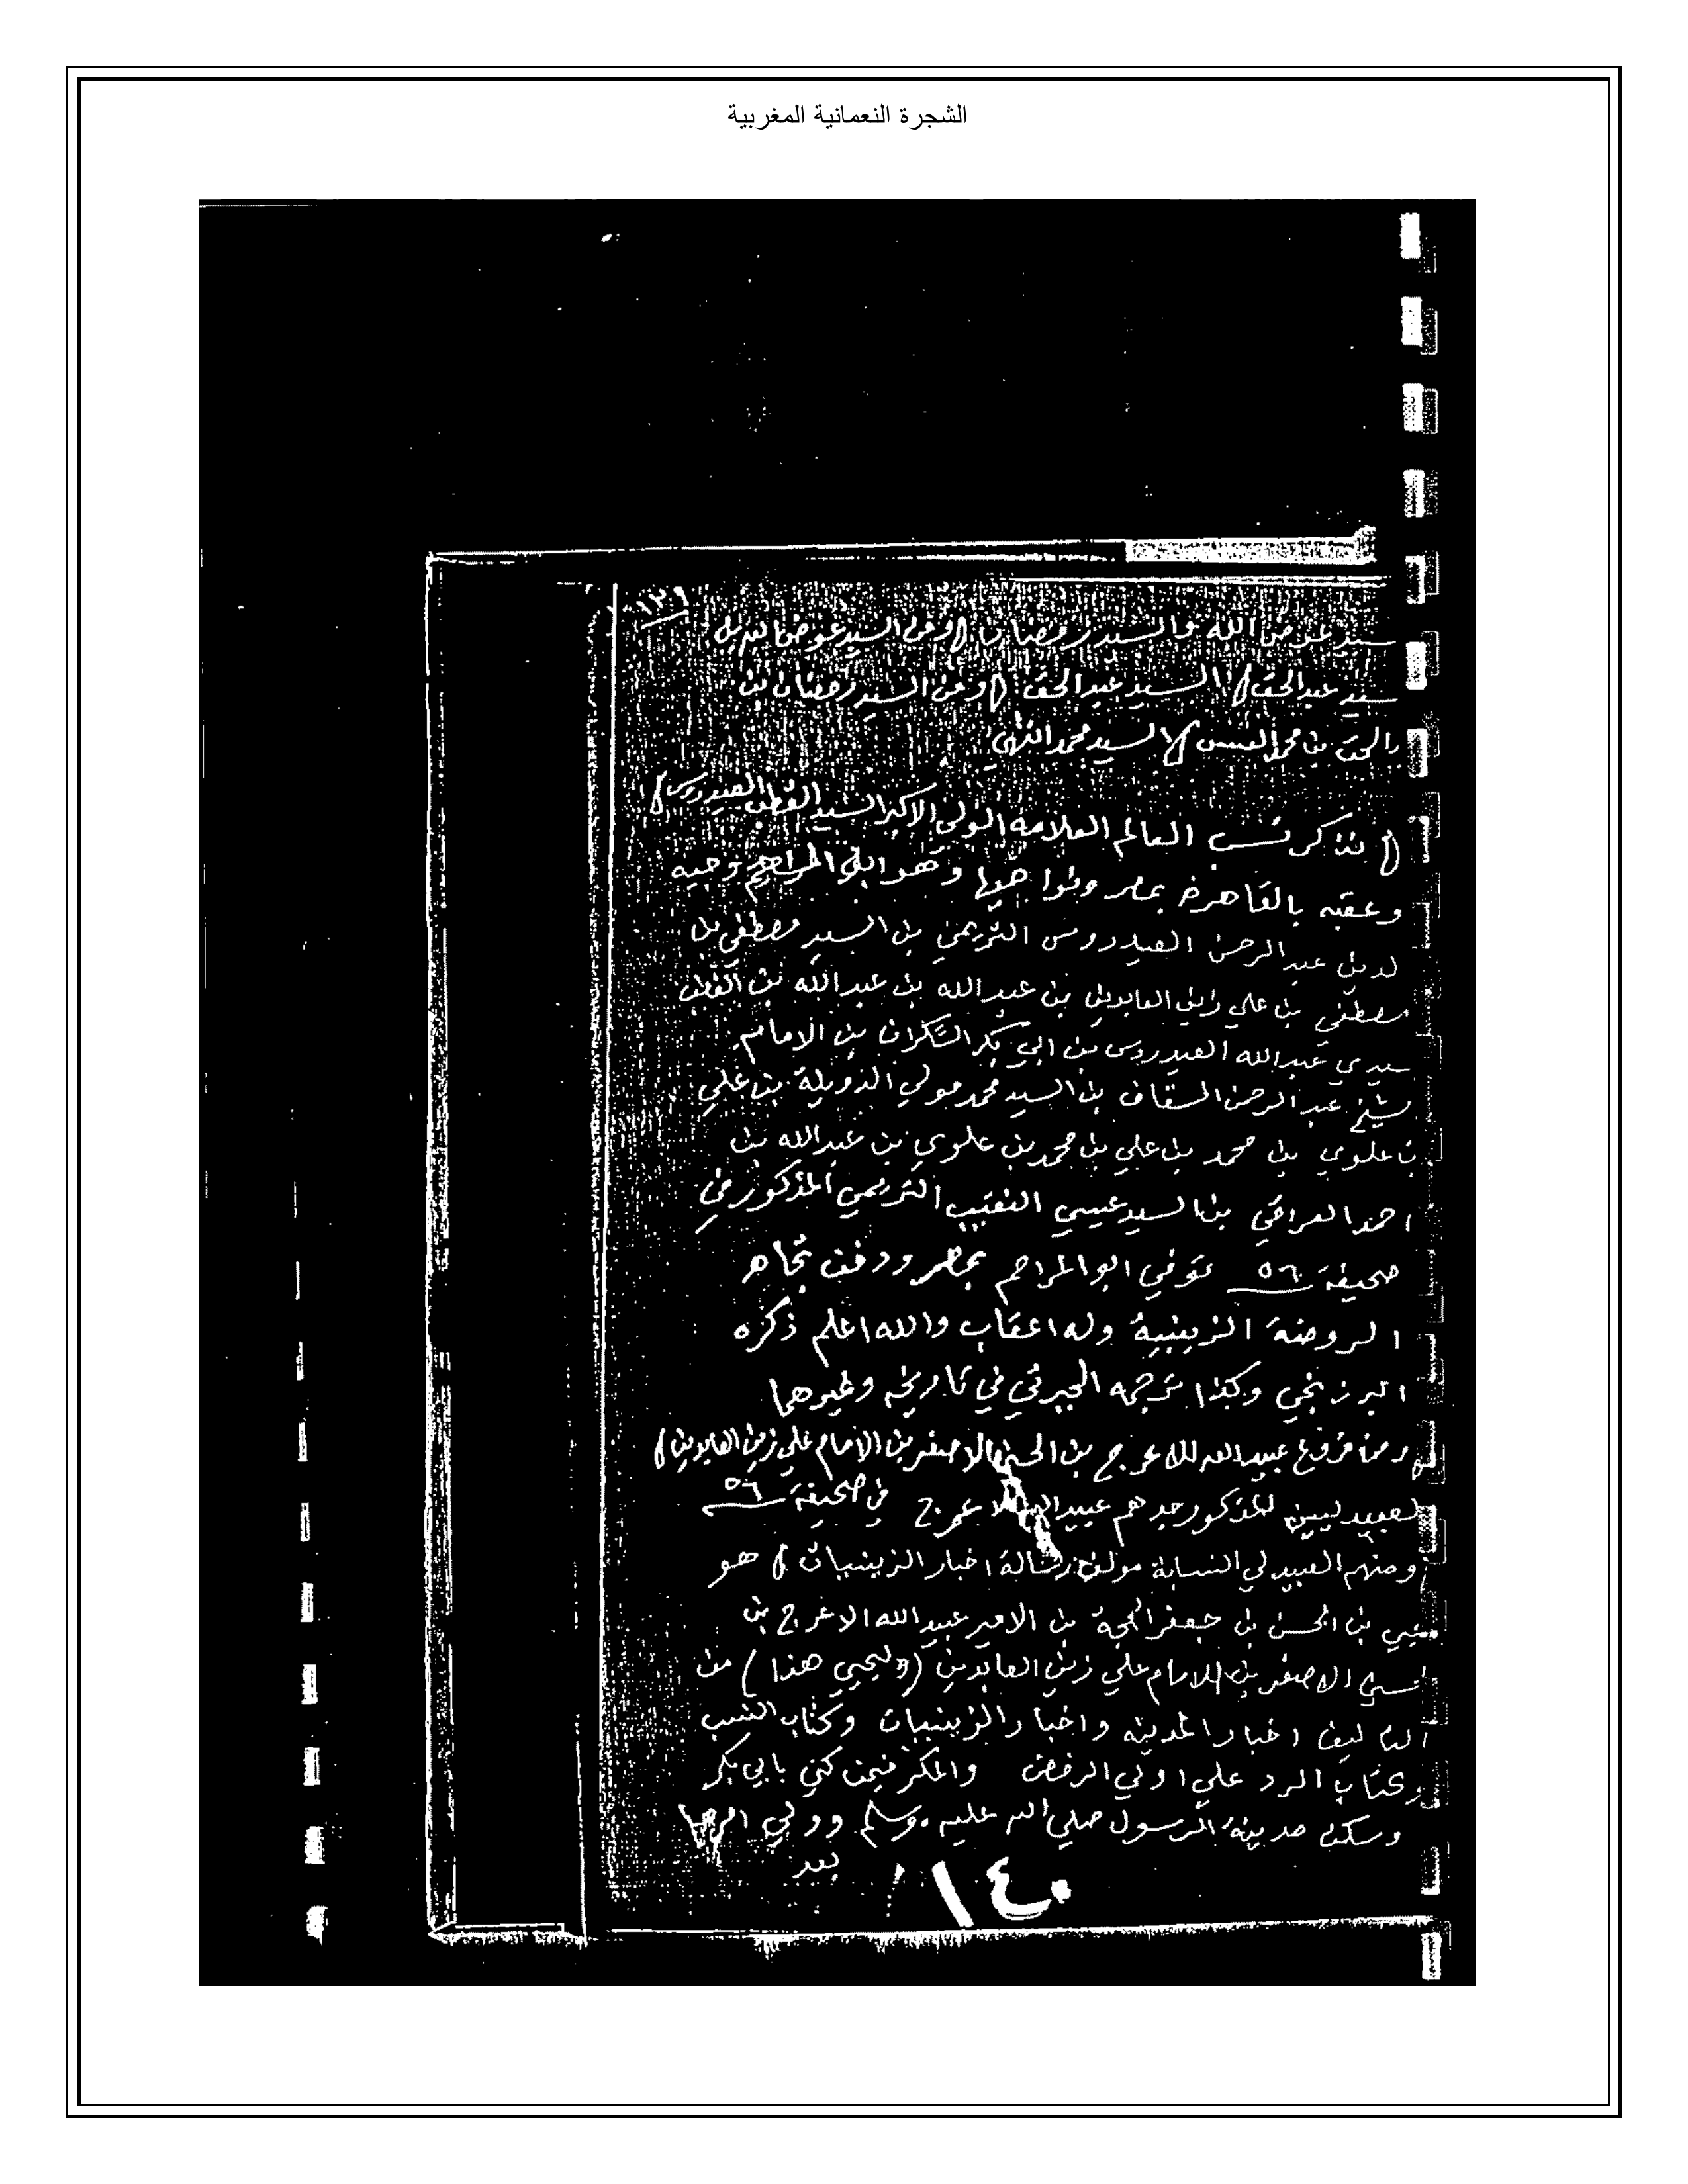 الشجرة النعمانية المغربية
١٣٩
سيد عوض الله والسيد رمضان ومن السيد عوض الله بن
سيد عبد الحق السيد عبد الحق ومن السيد رمضان بن
بد الحق بن محمد السيد محمد التهامي
نذكر نسب العالم العلامة الولي الاكبر السيد القطب العيدروسي
وعقبه بالقاهرة بمصر ونواحيها وهو ابي المراحم وجيه
لدين عبد الرحمن العيدروس التريمي بن السيد مصطفي بن
مصطفي بن علي زين العابدين بن عبد الله بن عبد الله بن القطب
سيدي عبد الله العيدروس بن ابي بكر السكران بن الامام
شيخ عبد الرحمن السقاف بن السيد محمد مولي الدويلة بن علي
بن علوي بن محمد بن علي بن محمد بن علوي بن عبد الله بن
احمد العراقي بن السيد عيسي النقيب التريمي المذكور في
صحيفة ٥٦ توفي ابو المراحم بمصر ودفن تجاه
الروضة الزينبية وله اعقاب والله اعلم ذكره
البرزنجي وكذا ترجمه الجبرتي في تاريخه وغيرهما
ومن فروع عبيد الله الاعرج بن الحسين الاصغر بن الامام علي زين العابدين
لعبيدليين المذكور جدهم عبيد الله الاعرج في صحيفة ٥٦
ومنهم العبيدلي النسابة مولف رسالة اخبار الزينبيات هو
يحيي بن الحسن بن جعفر الحجة بن الامير عبيد الله الاعرج بن
حسين الاصغر بن الامام علي زين العابدين (وليحيي هذا) من
التاليف اخبار المدينه واخبار الزينبيات وكتاب النسب
وكتاب الرد علي اولي الرفض والمكر فيمن كني بابي بكر
وسكن مدينة الرسول صلي الله عليه وسلم وولي امرها
بعد
١٤٠